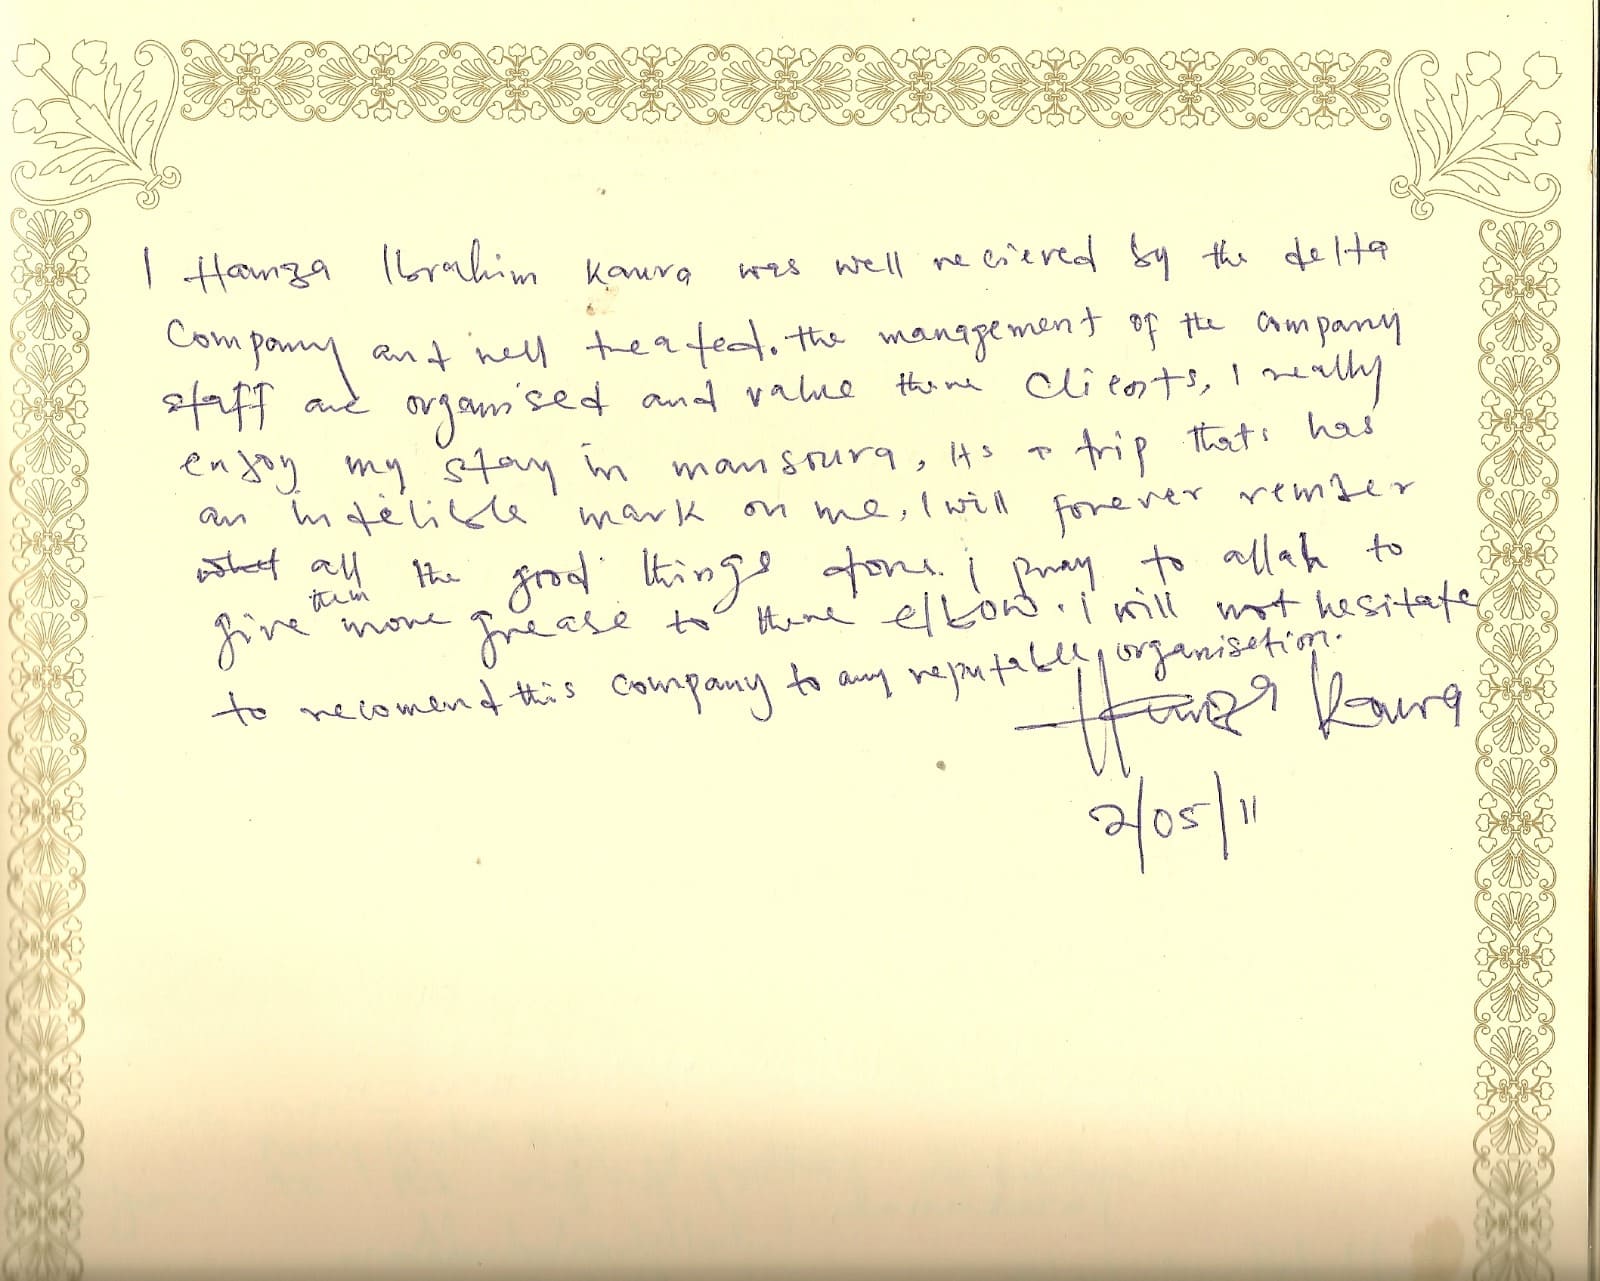 I Hamza Ibrahim Kaura was well recieved by the delta
Company and well treated. the management of the company
staff are organised and value there Clients, I really
enjoy my stay in mansoura, its a trip thats has
an indelible mark on me, I will forever rember
all the good things done. i pray to allah to
give them more grease to there elbow. I will not hesitate
to recomend this company to any reputable organisation.
Hamza Kaura
2/05/11